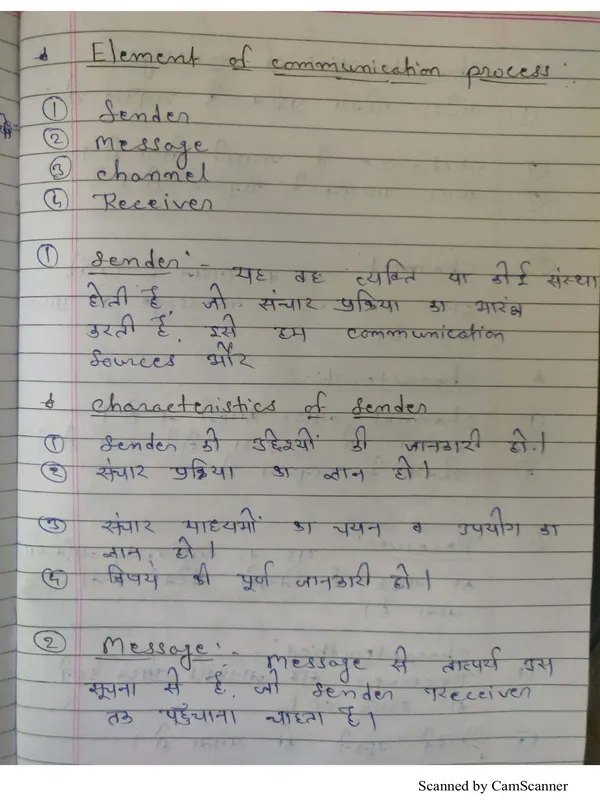 Element of communication process :
① Sender
② Message
③ channel
④ Receiver
① Sender :- यह वह व्यक्ति या कोई संस्था
होती है जो संचार प्रक्रिया का प्रारंभ
करती है, इसे हम communication
Sources और
characteristics of Sender
① Sender को उद्देश्यों की जानकारी हो।
② संचार प्रक्रिया का ज्ञान हो।
③ संचार माध्यमों का चयन व उपयोग का
ज्ञान हो।
④ विषय की पूर्ण जानकारी हो।
② Message :- Message से तात्पर्य उस
सूचना से है, जो Sender Receiver
तक पहुँचाना चाहता है।
Scanned by CamScanner